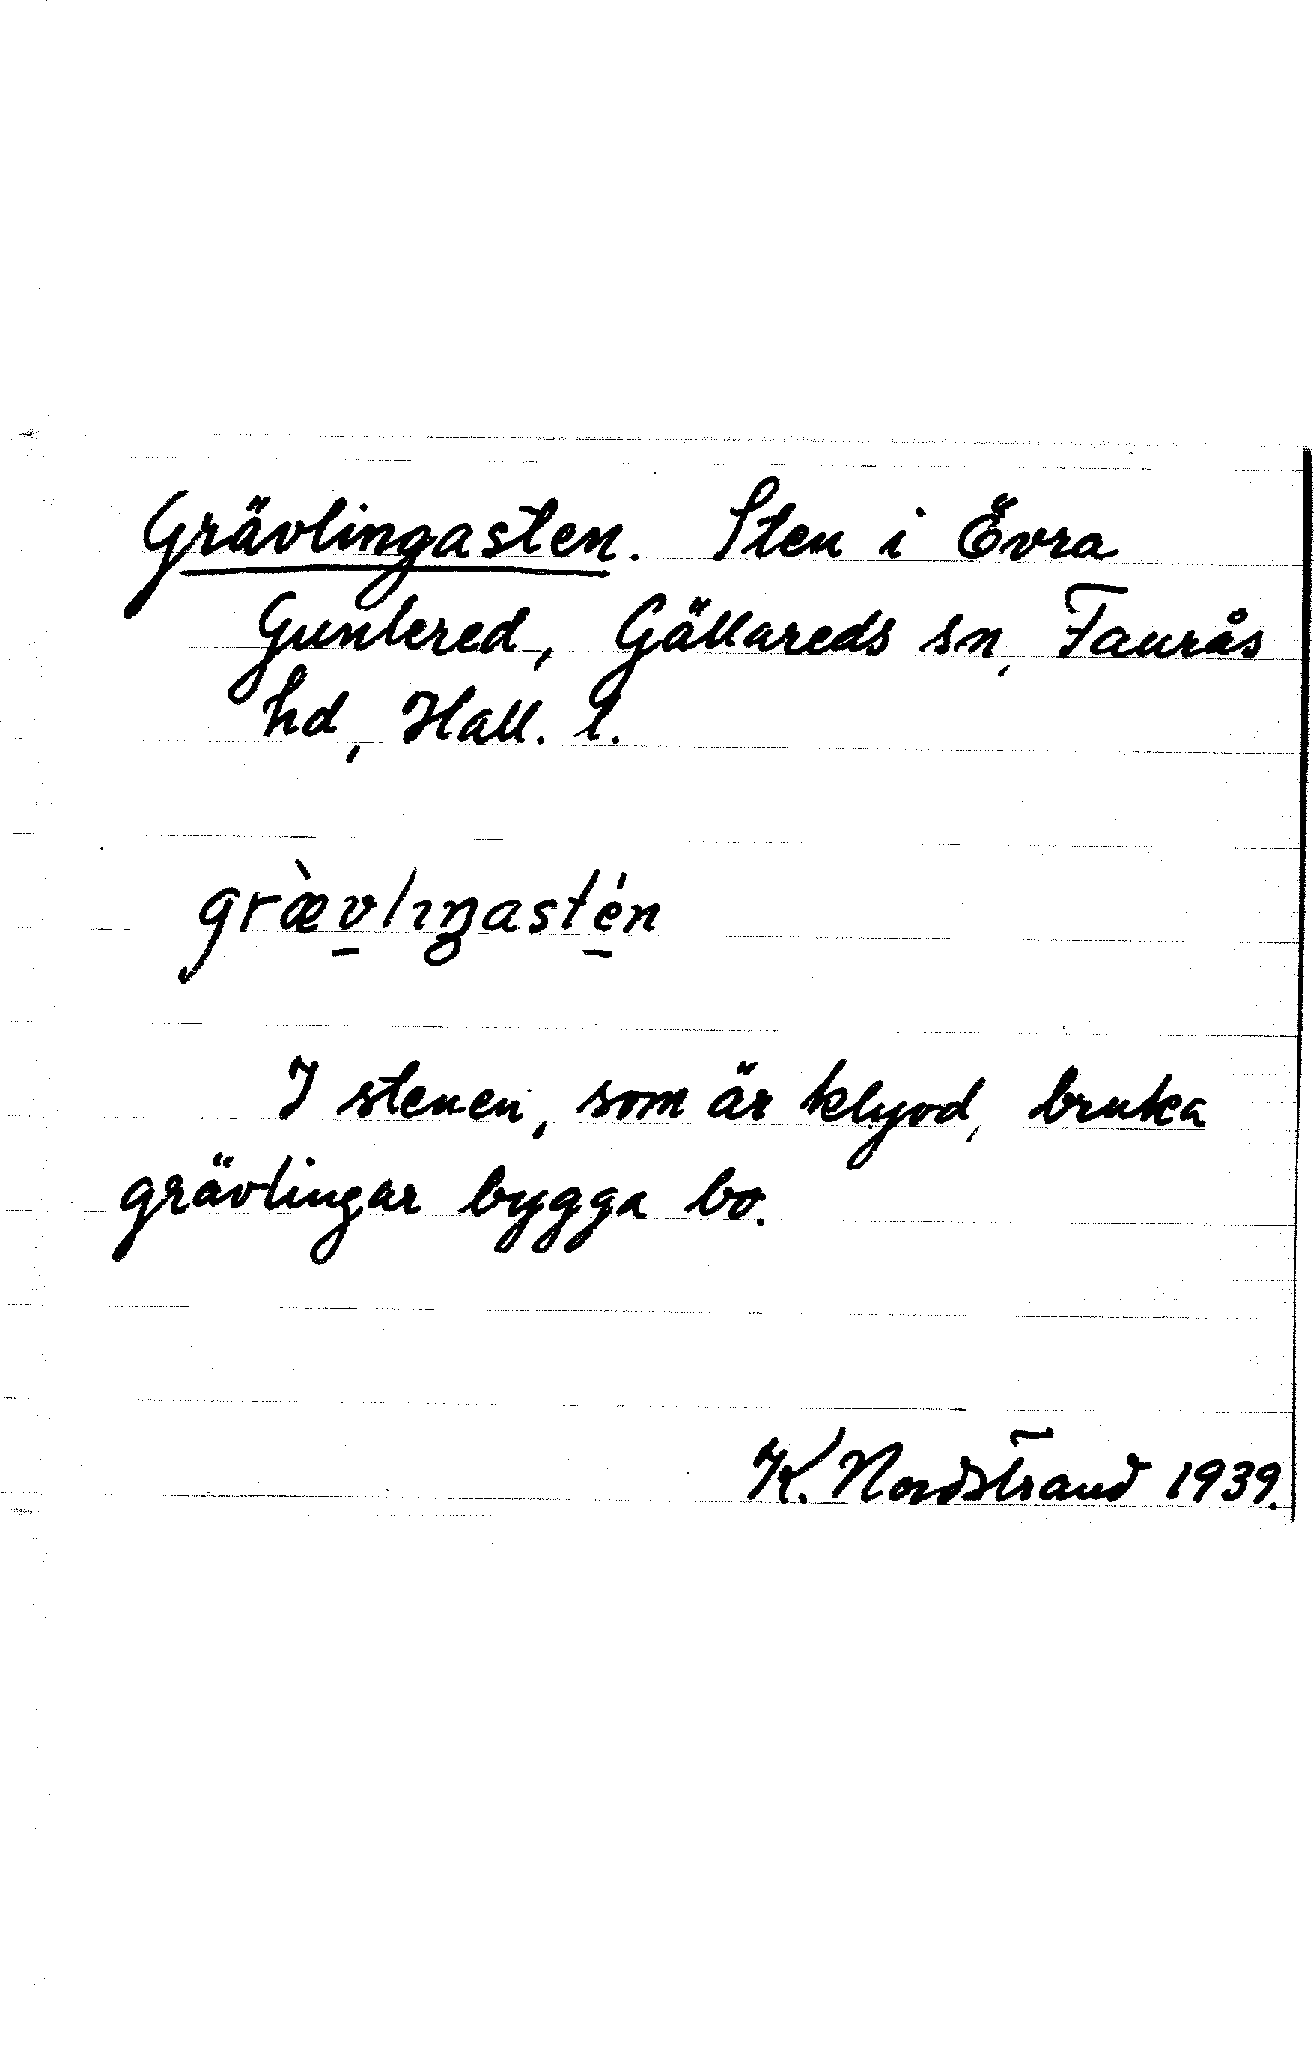 Grävlingasten. Sten i Övra
Gunbered, Gällareds sn, Faurås
hd, Hall. l.
græ̀v̲lıŋasté̲n
I stenen, som är klyvd, bruka
grävlingar bygga bo.
K. Nordstrand 1939.